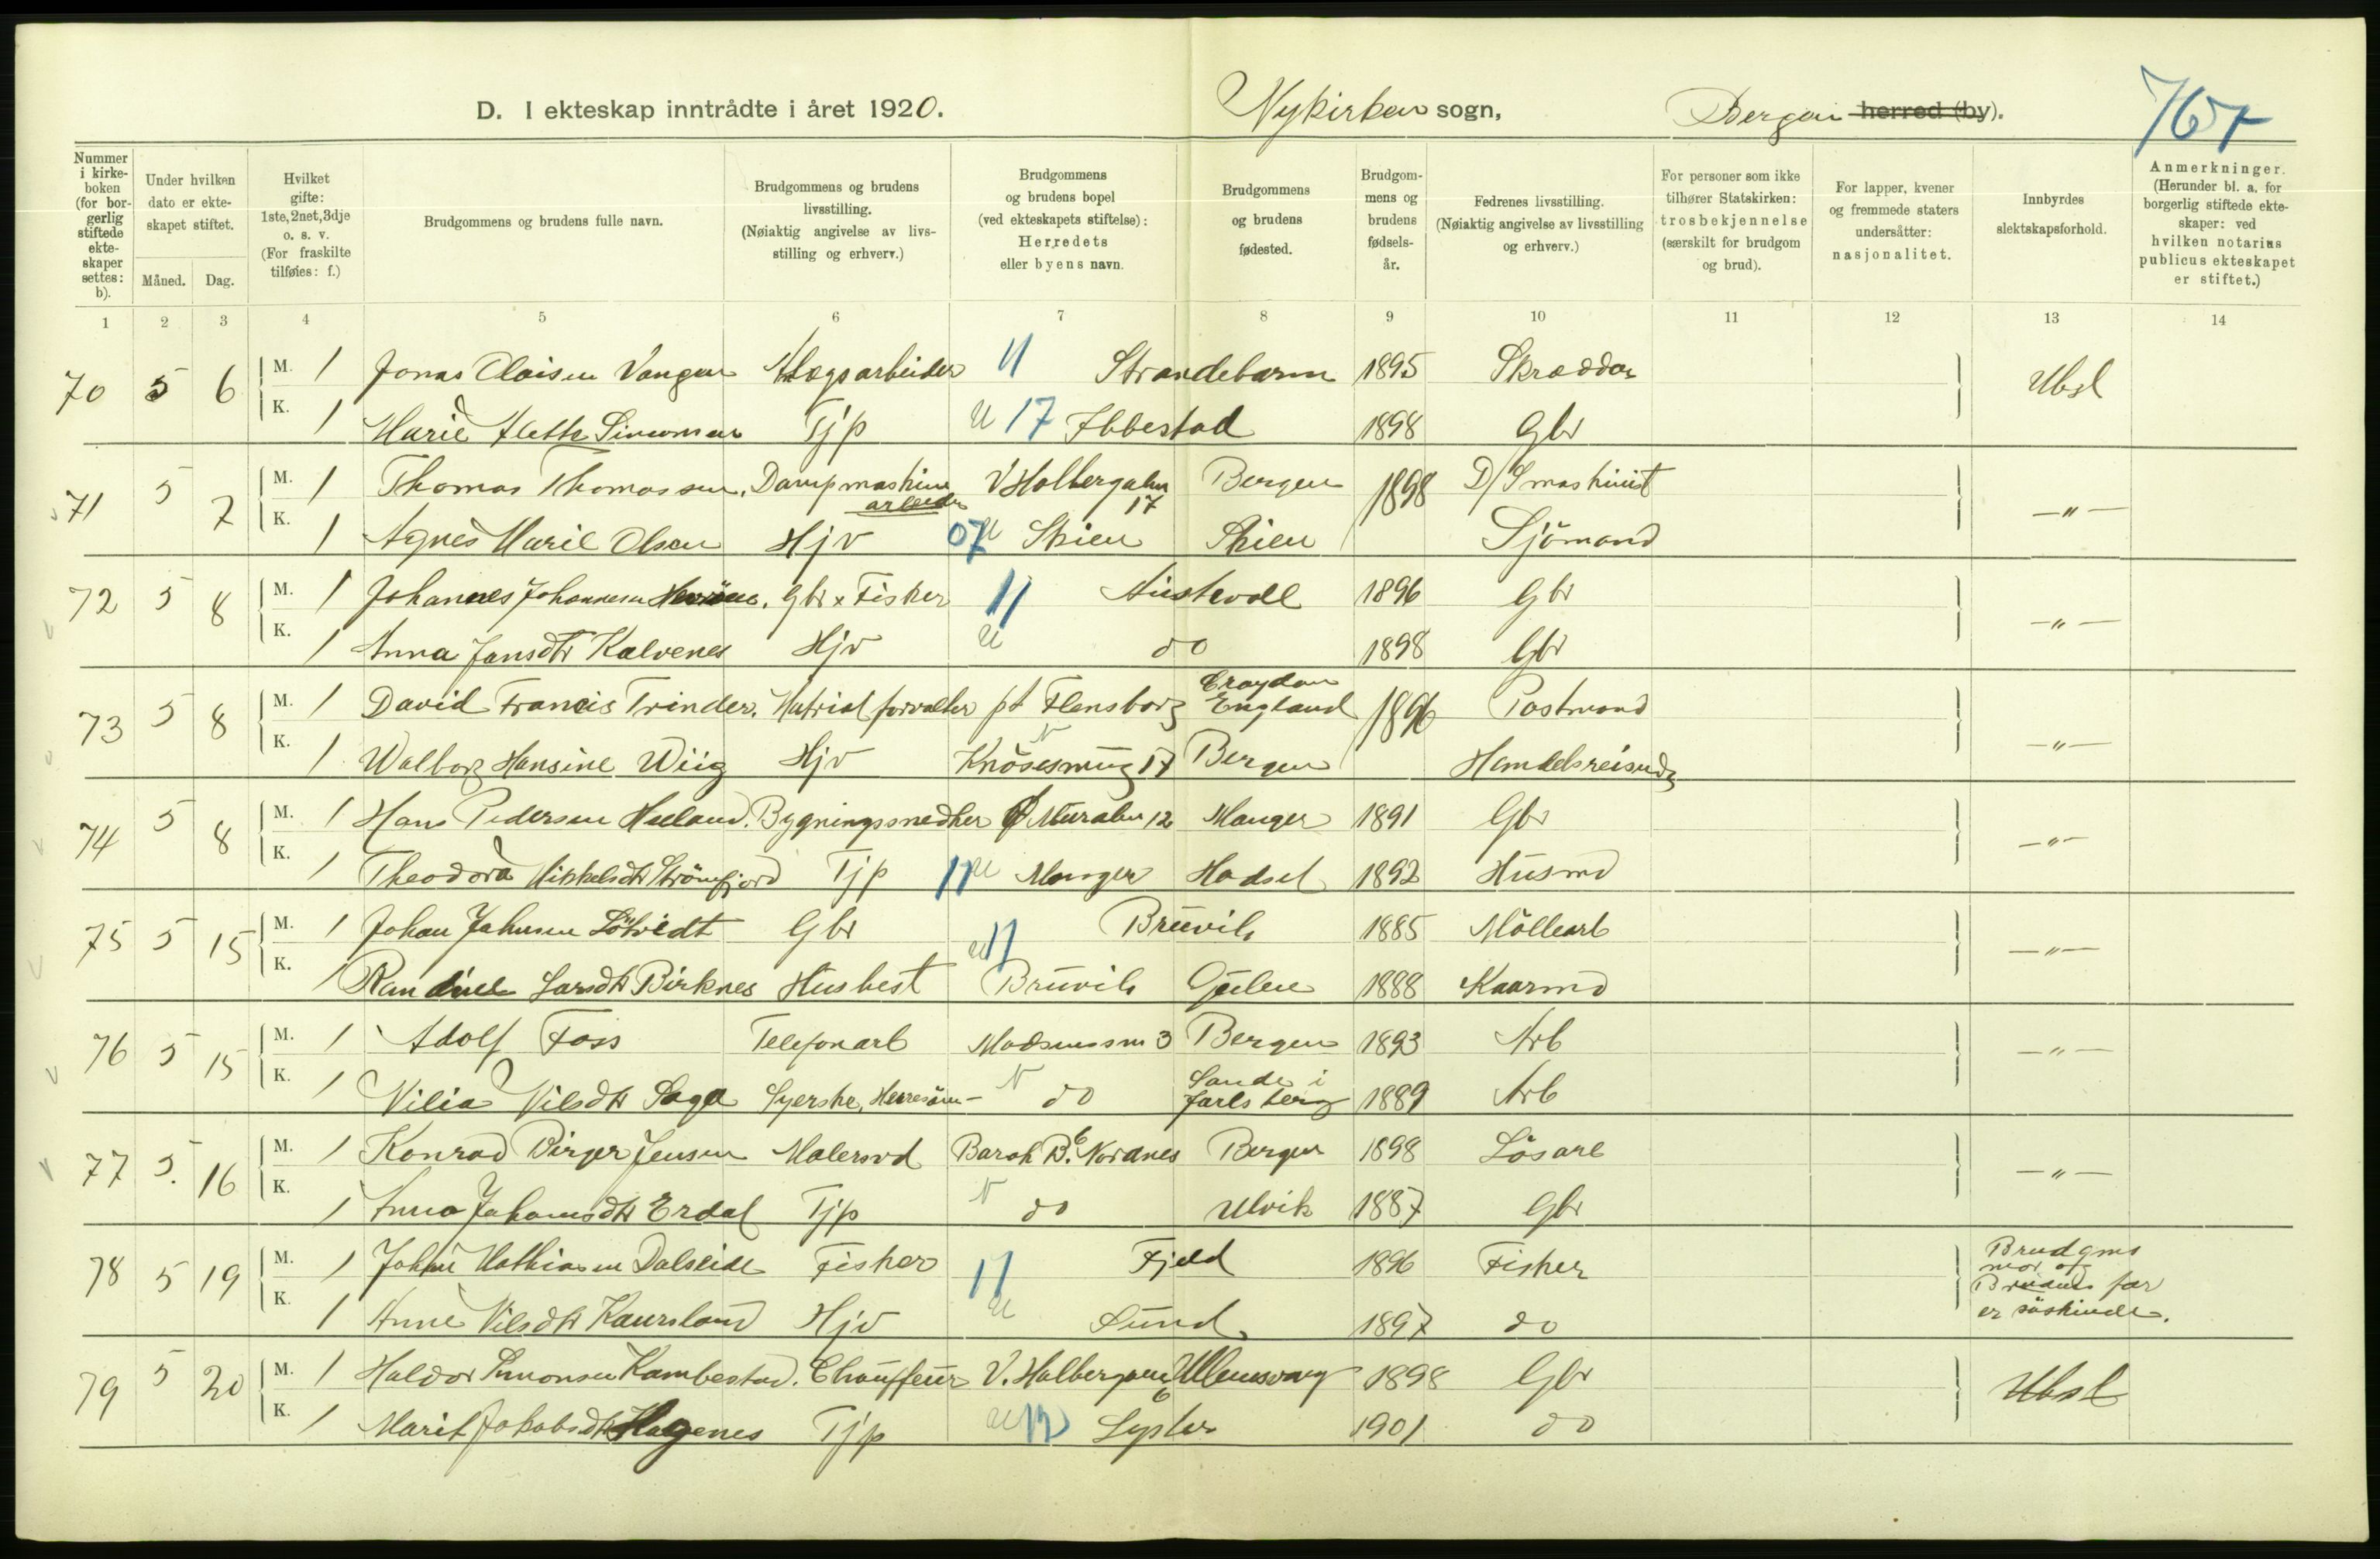 D. I ekteskap inntrådte i året 1920. Nykirken sogn, Bergen herred (by). 767
Nummer i kirkeboken (for borgerlig stiftede ekteskaper settes: b).
Under hvilken dato er ekteskapet stiftet.
Måned. Dag.
Hvilket gifte: 1ste, 2net, 3dje o. s. v. (For fraskilte tilføies: f.)
Brudgommens og brudens fulle navn.
Brudgommens og brudens livsstilling. (Nøiaktig angivelse av livsstilling og erhverv.)
Brudgommens og brudens bopel (ved ekteskapets stiftelse): Herredets eller byens navn.
Brudgommens og brudens fødested.
Brudgommens og brudens fødselsår.
Fedrenes livsstilling. (Nøiaktig angivelse av livsstilling og erhverv.)
For personer som ikke tilhører Statskirken: trosbekjennelse (særskilt for brudgom og brud).
For lapper, kvener og fremmede staters undersåtter: nasjonalitet.
Innbyrdes slektskapsforhold.
Anmerkninger. (Herunder bl. a. for borgerlig stiftede ekteskaper: ved hvilken notarius publicus ekteskapet er stiftet.)
1 2 3 4 5 6 7 8 9 10 11 12 13 14
70 5 6 M. 1 Jonas Olaisen Vangen Anlægsarbeider 11 Strandebarm 1895 Skrædder Ubsl
K. 1 Marie Mette Simonsen Tjp U 17 Ibbestad 1898 Gbr
71 5 7 M. 1 Thomas Thomassen. Dampmaskinarbeider V Holbergalm 17 Bergen 1898 D/S maskinist —"—
K. 1 Agnes Marie Olsen Hjv 07 U Skien Skien Sjömand
72 5 8 M. 1 Johannes Johannesen. Gbr & Fisker 11 Austevoll 1896 Gbr —"—
K. 1 Anna Jansdtr Kalvenes Hjv U do 1898 Gbr
73 5 8 M. 1 David Francis Trinder. Matrialforvalter pt Flensborg Croydon England 1896 Postmand —"—
K. 1 Walborg Hansine Wiig Hjv Knösesmug 17 N Bergen Handelsreisende
74 5 8 M. 1 Hans Pedersen Heland. Bygningssnedker Ø Muralm 12 Manger 1891 Gbr —"—
K. 1 Theodora Mikkelsdtr Strömfjord Tjp 11 U Manger Hadsel 1892 Husmd
75 5 15 M. 1 Johan Johnsen Lötvedt Gbr Bruvik 1885 Möllearb —"—
K. 1 Randine Larsdtr Birknes Husbest U 11 Bruvik Gulen 1888 Kaarmd
76 5 15 M. 1 Adolf Foss Telefonarb Madsenssm 3 Bergen 1893 Arb —"—
K. 1 Nilia Nilsdtr Saga Syerske, Herresöm- N do Sande i Jarlsberg 1889 Arb
77 5. 16 M. 1 Konrad Birger Jensen Malersvd Barak B. 6 Nordnes Bergen 1898 Lösarb —"—
K. 1 Anna Johannsdtr Erdal Tjp N do Ulvik 1887 Gbr
78 5 19 M. 1 Johan Mathiasen Dalseide Fisker 11 Fjeld 1896 Fisker Brudgms mor og Brudens far er söskinde.
K. 1 Anne Nilsdtr Kaursland Hjv U Sund 1897 do
79 5 20 M. 1 Haldor Simonsen Kambestad. Chauffeur V. Holbergsalm 6 Ullensvang 1898 Gbr Ubsl
K. 1 Marit Jakobsdtr Hagenes Tjp U 12 Lyster 1901 do